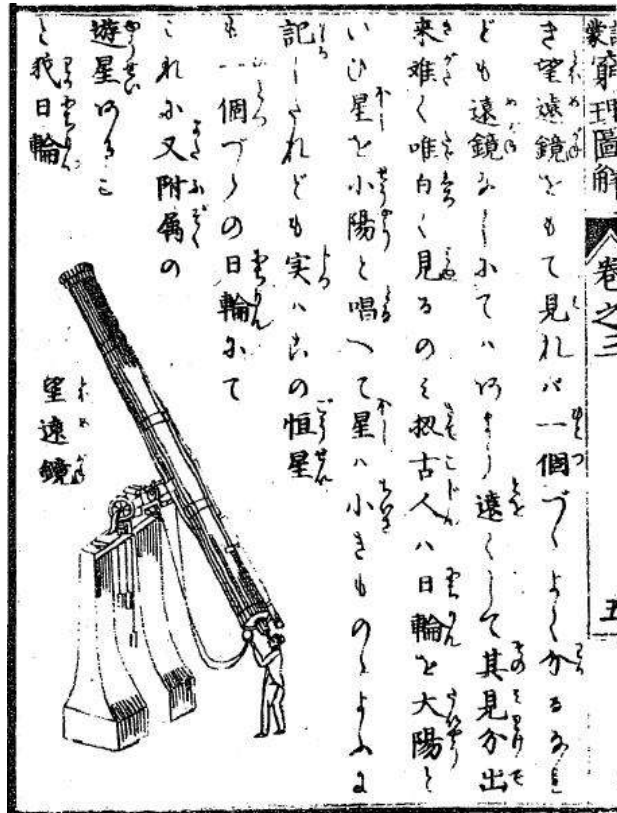 訓蒙窮理圖解 巻之三 五
き望遠鏡をもて見れバ一個づゝよく分るなれ
ども遠鏡なしにてハあまり遠くして其見分出
来難く唯白く見るのミ扨古人ハ日輪を大陽と
いひ星を小陽と唱へて星ハ小きものゝよふに
記したれども実ハの恒星
も一個づゝの日輪にて
これに又附属の
遊星あるこ
と我日輪
望遠鏡